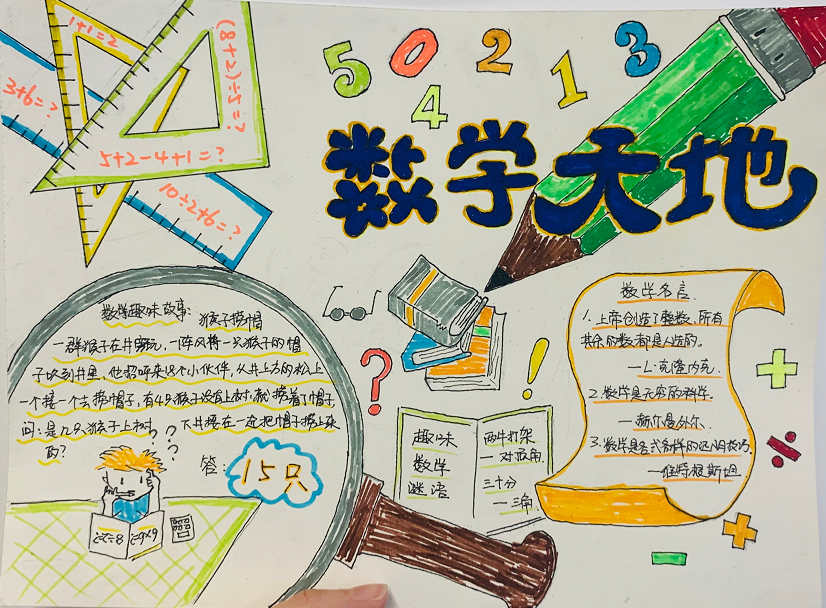 1+1=2
(8+2)÷5=?
3+6=?
5+2-4+1=?
10÷2+6=?
5 0 2 1 3
4
数学天地
数学趣味故事: 猴子捞帽
一群猴子在井旁玩,一阵风将一只猴子的帽
子吹到井里,他招呼来18个小伙伴,从井上方的松上
一个接一个去捞帽子,有4只猴子没有上树,就捞着了帽子,
问:是几只猴子上树 下井接在一起把帽子捞上来
的?
答: 15只
???
?
!
趣味
数学
谜语
两牛打架
一对顶角
三十分
一三角
数学名言
1.上帝创造了整数,所有
其余的数都是人造的。
—L·克隆内克
2.数学是无穷的科学。
—赫尔曼外尔
3.数学是各式各样的证明技巧
—维特根斯坦
+
%
+
-